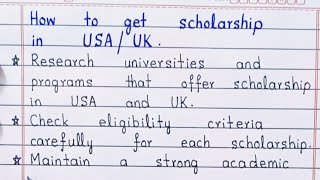 How to get scholarship
in USA/UK.
☆ Research universities and
programs that offer scholarship
in USA and UK.
☆ Check eligibility criteria
carefully for each scholarship.
☆ Maintain a strong academic